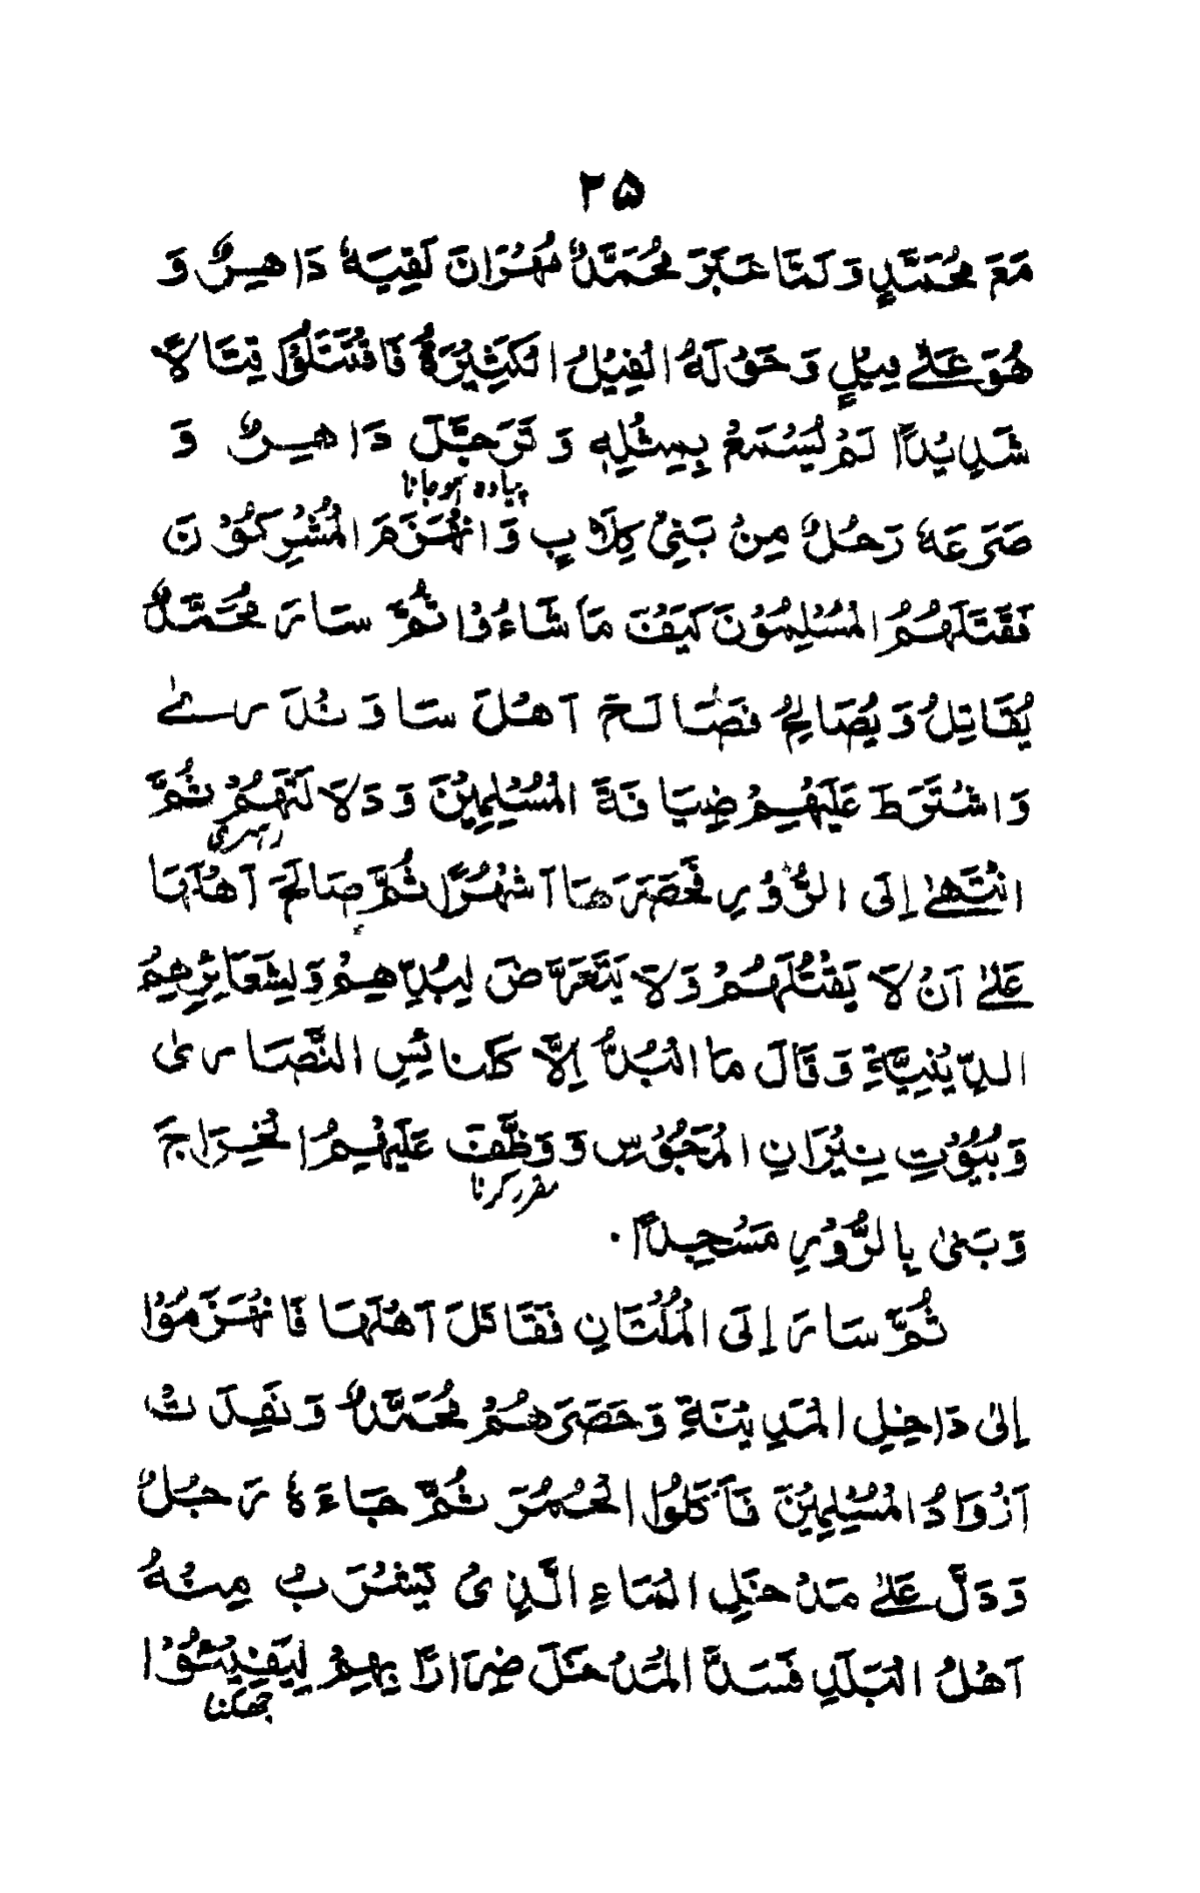 ۲۵
مَعَ مُحَمَّدٍ وَلَمَّا عَبَرَ مُحَمَّدٌ مُهْرَانَ لَقِيَهٗ دَاهِرٌ وَ
هُوَ عَلٰى فِيلٍ وَحَوْلَهُ الْفِيْلُ الْكَثِيْرَةُ فَاقْتَتَلُوْا قِتَالًا
شَدِيْدًا لَمْ يُسْمَعْ بِمِثْلِهٖ وَ تَرَجَّلَ دَاهِرٌ وَ
پیادہ ہوجانا
صَرَعَهٗ رَجُلٌ مِنْ بَنِيْ كِلَابٍ وَانْهَزَمَ الْمُشْرِكُوْنَ
فَقَتَلَهُمُ الْمُسْلِمُوْنَ كَيْفَ مَا شَاءُوْا ثُمَّ سَارَ مُحَمَّدٌ
يُقَاتِلُ وَيُصَالِحُ فَصَالَحَ اَهْلَ سَاوَنْدَرٰے
وَاشْتَرَطَ عَلَيْهِمْ ضِيَافَةَ الْمُسْلِمِيْنَ وَدَلَالَتَهُمْ ثُمَّ
رہبری
انْتَهٰى اِلَى الرُّوْرِ فَحَصَرَهَا اَشْهُرًا ثُمَّ صَالَحَ اَهْلَهَا
عَلٰى اَنْ لَا يَقْتُلَهُمْ وَلَا يَتَعَرَّضَ لِبُدِّهِمْ وَلِشَعَائِرِهِمُ
الدِّيْنِيَّةِ وَقَالَ مَا الْبُدُّ اِلَّا كَكَنَائِسِ النَّصَارٰى
وَبُيُوْتِ نِيْرَانِ الْمَجُوْسِ وَ وَظَّفَ عَلَيْهِمُ الْخِرَاجَ
مقرر کرنا
وَبَنٰى بِالرُّوْرِ مَسْجِدًا ۔
ثُمَّ سَارَ اِلَى الْمُلْتَانِ فَقَاتَلَ اَهْلَهَا فَانْهَزَمُوْا
اِلٰى دَاخِلِ الْمَدِيْنَةِ وَحَصَرَهُمْ مُحَمَّدٌ وَنَفِدَتْ
اَزْوَادُ الْمُسْلِمِيْنَ فَاَكَلُوا الْحُمُرَ ثُمَّ جَاءَهٗ رَجُلٌ
وَدَلَّ عَلٰى مَدْخَلِ الْمَاءِ الَّذِيْ يَشْرَبُ مِنْهُ
اَهْلُ الْبَلَدِ فَسَدَّ الْمَدْخَلَ ضِرَارًا بِهِمْ لِيَفِيْئُوْا
جھکنا